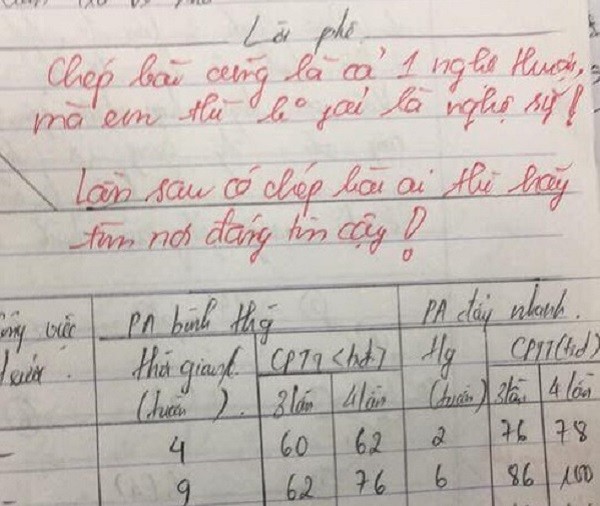 Lời phê
Chép bài cũng là cả 1 nghệ thuật,
mà em thì k° phải là nghệ sỹ!
Lần sau có chép bài ai thì hãy
tìm nơi đáng tin cậy!
việc PA bình thg PA đẩy nhanh.
trước. thời gian CPTT (tr.đ) tg CPTT (trđ)
(tuần). 3 lần 4 lần (tuần) 3 lần 4 lần
- 4 60 62 2 76 78
- 9 62 76 6 86 100